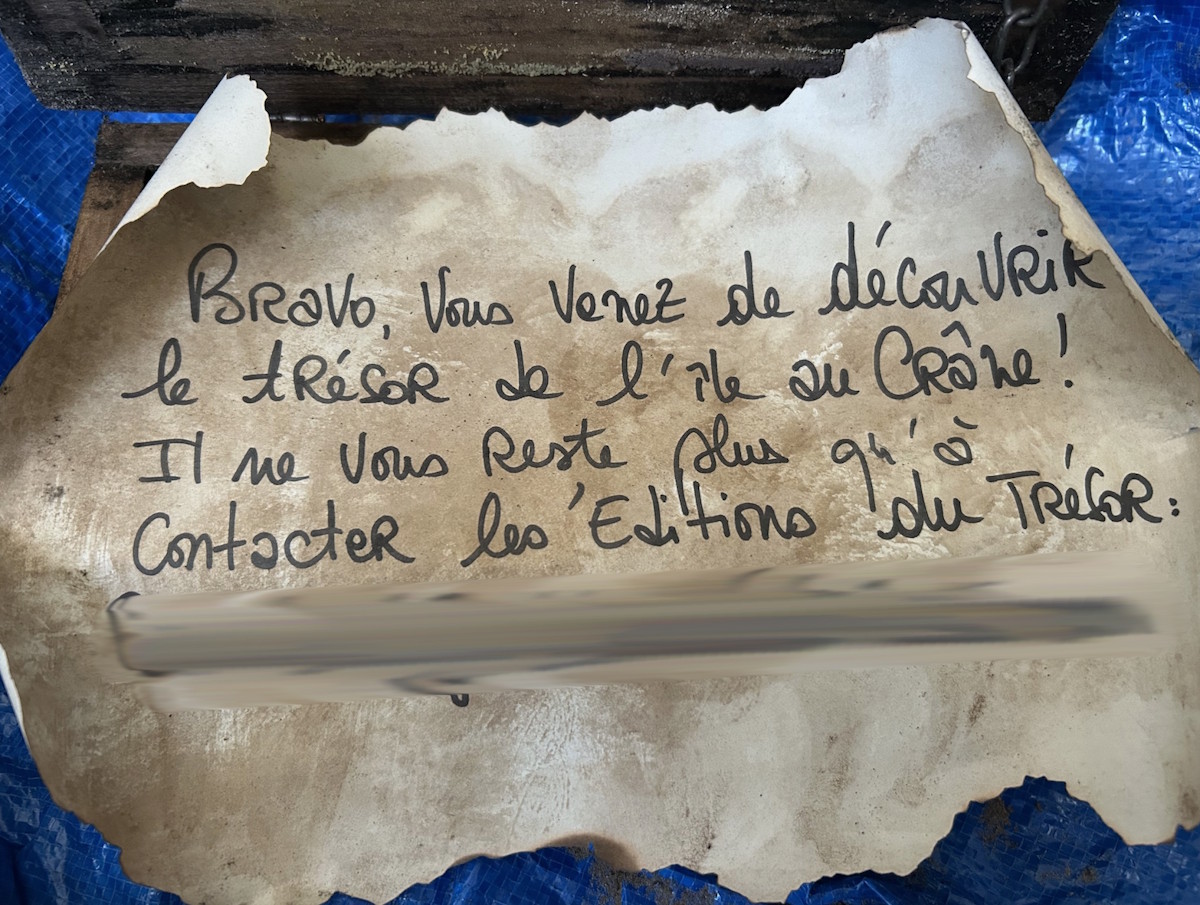 Bravo, vous venez de découvrir
le trésor de l'île au Crâne !
Il ne vous reste plus qu'à
contacter les Éditions du Trésor :